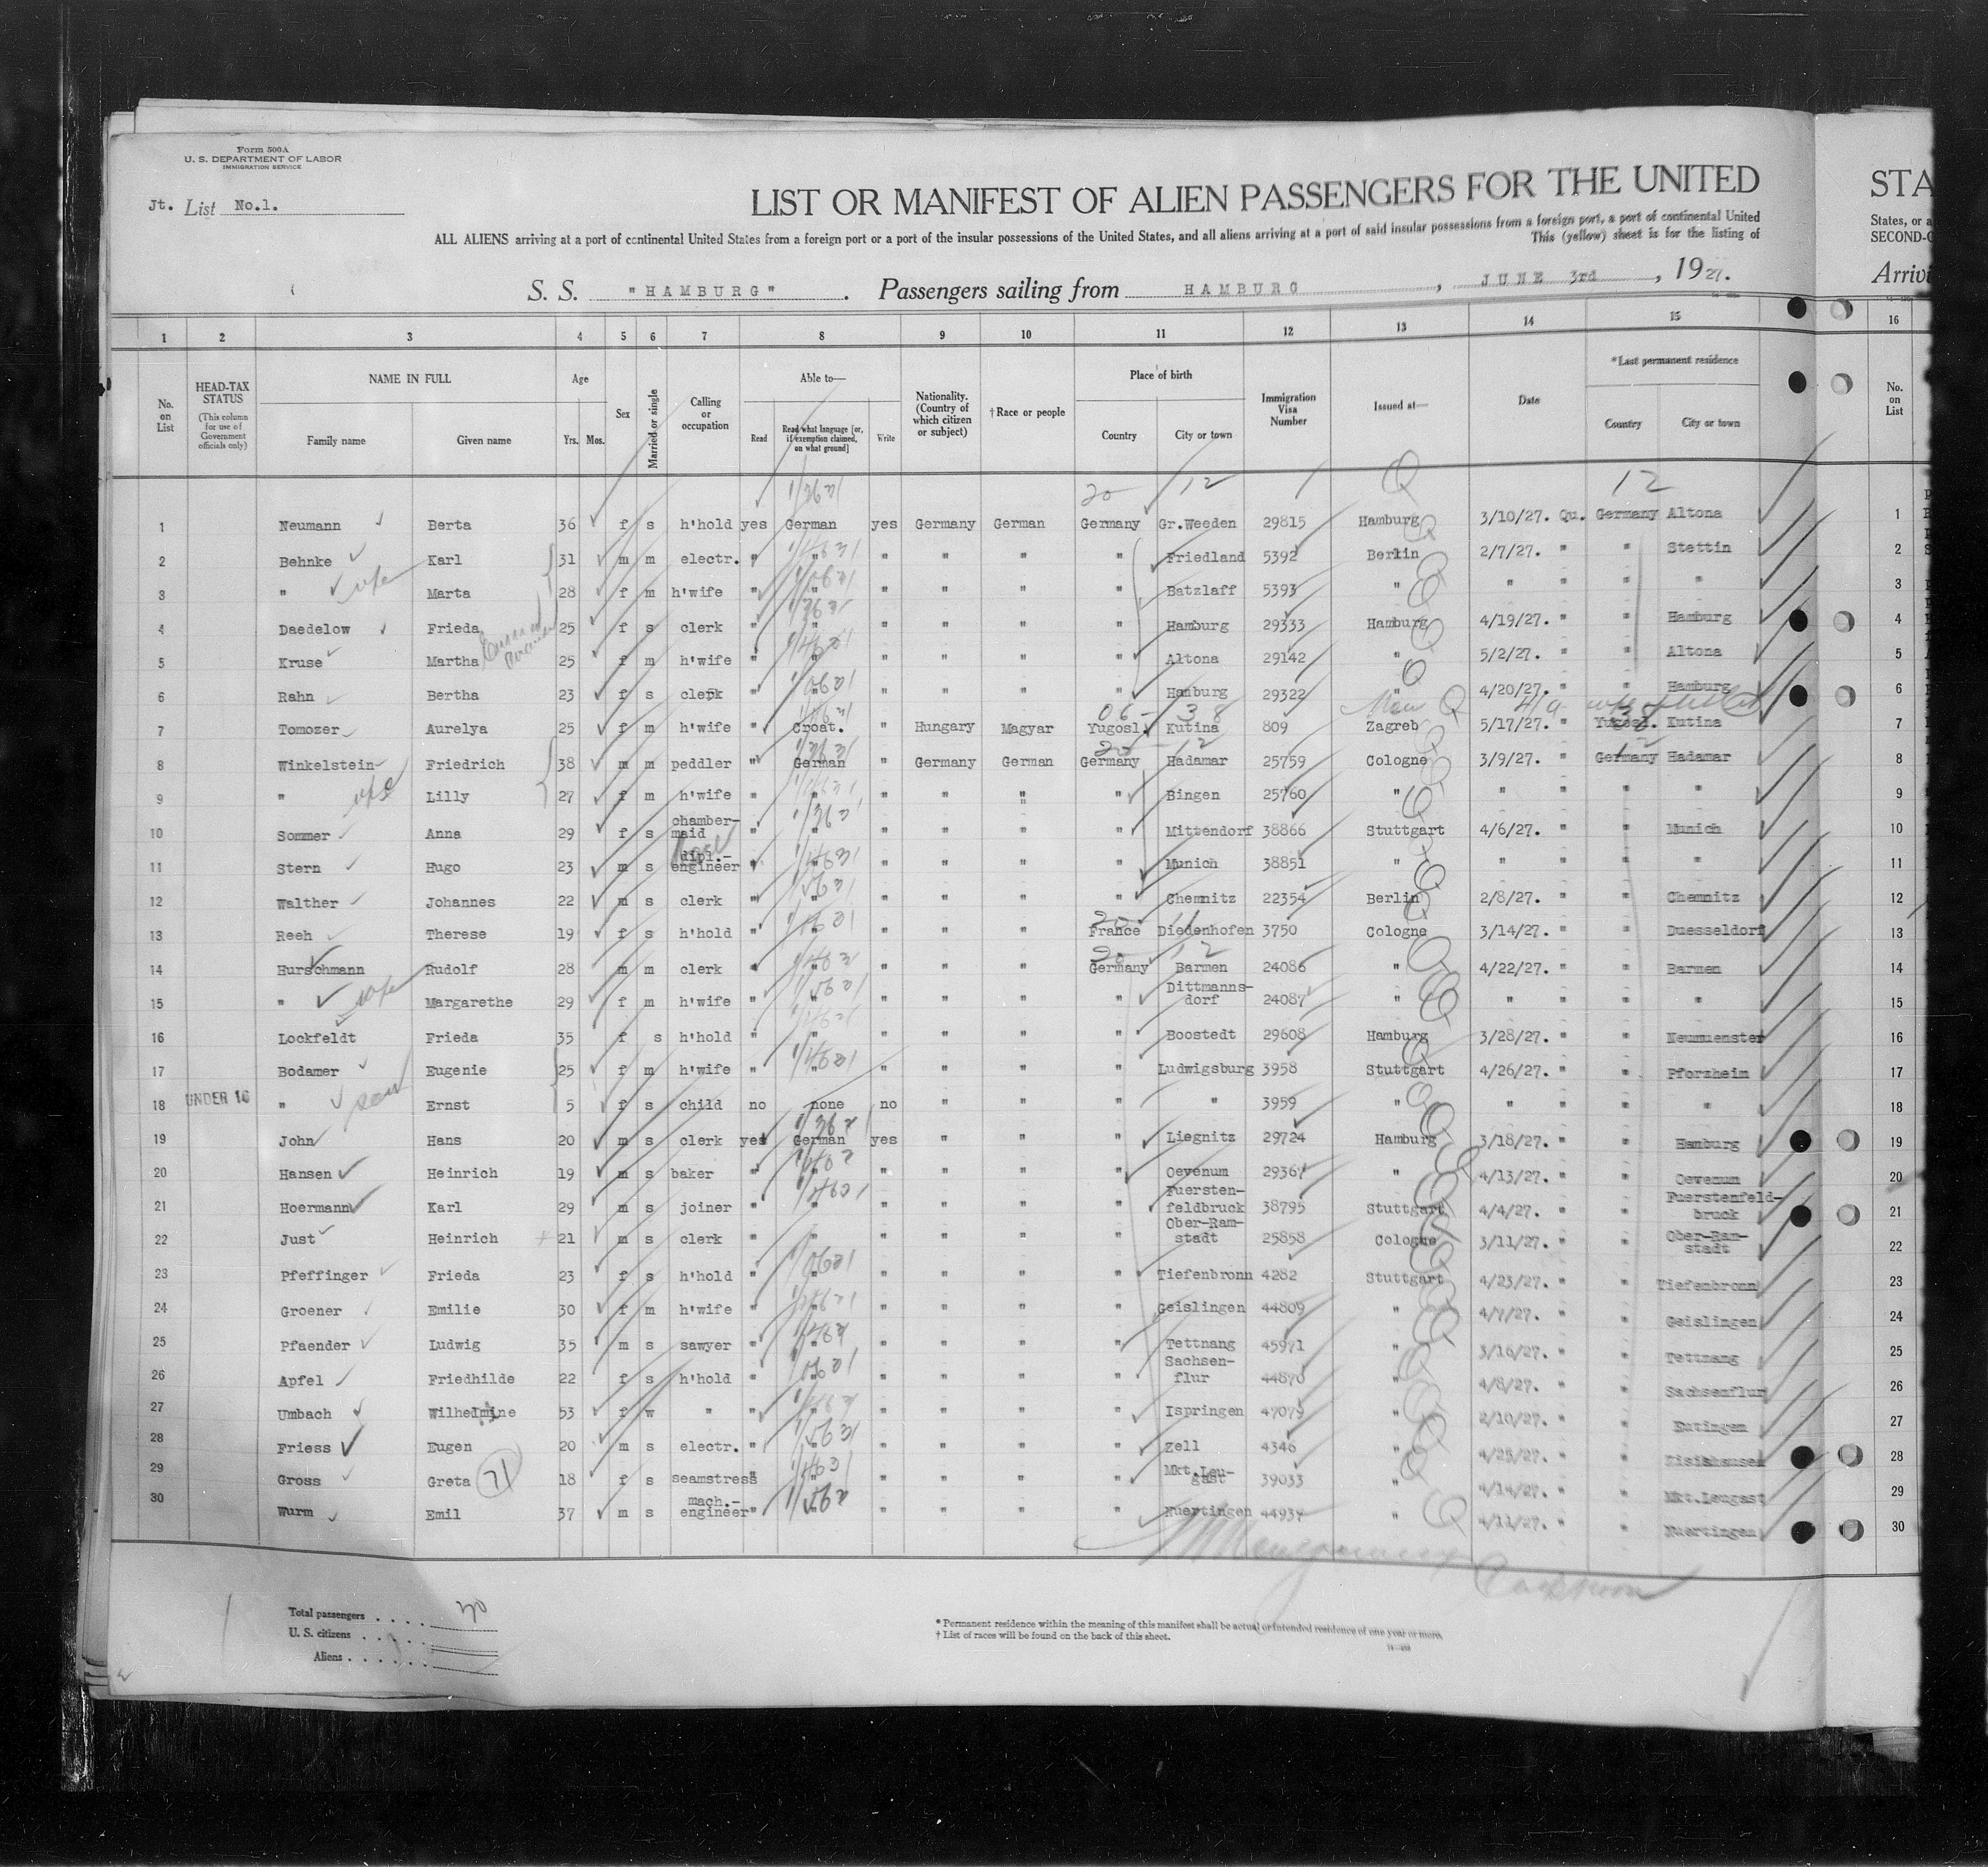 Form 500A
U. S. DEPARTMENT OF LABOR
IMMIGRATION SERVICE
Jt. List No.1.
LIST OR MANIFEST OF ALIEN PASSENGERS FOR THE UNITED
STA
ALL ALIENS arriving at a port of continental United States from a foreign port or a port of the insular possessions of the United States, and all aliens arriving at a port of said insular possessions from a foreign port, a port of continental United
States, or a
This (yellow) sheet is for the listing of
SECOND-C
S. S. "HAMBURG" . Passengers sailing from HAMBURG , JUNE 3rd , 1927.
Arrivi
1 2 3 4 5 6 7 8 9 10 11 12 13 14 15 16
No. on List
HEAD-TAX STATUS (This column for use of Government officials only)
NAME IN FULL
Family name Given name
Age
Yrs. Mos.
Sex
Married or single
Calling or occupation
Able to—
Read Read what language [or, if exemption claimed, on what ground] Write
Nationality. (Country of which citizen or subject)
† Race or people
Place of birth
Country City or town
Immigration Visa Number
Issued at—
Date
*Last permanent residence
Country City or town
No. on List
20 12 12
1 Neumann Berta 36 f s h'hold yes German yes Germany German Germany Gr.Weeden 29815 Hamburg 3/10/27. Qu. Germany Altona 1
2 Behnke Karl 31 m m electr. " " " " " " Friedland 5392 Berlin 2/7/27. " " Stettin 2
3 " wife Marta 28 f m h'wife " " " " " " Batzlaff 5393 " " " " " 3
4 Daedelow Frieda 25 f s clerk " " " " " " Hamburg 29333 Hamburg 4/19/27. " " Hamburg 4
5 Kruse Martha 25 f m h'wife " " " " " " Altona 29142 " 5/2/27. " " Altona 5
6 Rahn Bertha 23 f s clerk " " " " " " Hamburg 29322 " 4/20/27. " " Hamburg 6
7 Tomozer Aurelya 25 f m h'wife " Croat. " Hungary Magyar Yugosl. Kutina 809 Zagreb 5/17/27. " Yugosl. Kutina 7
8 Winkelstein Friedrich 38 m m peddler " German " Germany German Germany Hadamar 25759 Cologne 3/9/27. " Germany Hadamar 8
9 " wife Lilly 27 f m h'wife " " " " " " Bingen 25760 " " " " " 9
10 Sommer Anna 29 f s chamber-maid " " " " " " Mittendorf 38866 Stuttgart 4/6/27. " " Munich 10
11 Stern Hugo 23 m s dipl.-engineer " " " " " " Munich 38851 " " " " " 11
12 Walther Johannes 22 m s clerk " " " " " " Chemnitz 22354 Berlin 2/8/27. " " Chemnitz 12
13 Reeh Therese 19 f s h'hold " " " " " France Diedenhofen 3750 Cologne 3/14/27. " " Duesseldorf 13
14 Hurschmann Rudolf 28 m m clerk " " " " " Germany Barmen 24086 " 4/22/27. " " Barmen 14
15 " wife Margarethe 29 f m h'wife " " " " " " Dittmanns-dorf 24087 " " " " " 15
16 Lockfeldt Frieda 35 f s h'hold " " " " " " Boostedt 29608 Hamburg 3/28/27. " " Neumuenster 16
17 Bodamer Eugenie 25 f m h'wife " " " " " " Ludwigsburg 3958 Stuttgart 4/26/27. " " Pforzheim 17
18 UNDER 16 " Ernst 5 f s child no none no " " " " 3959 " " " " " 18
19 John Hans 20 m s clerk yes German yes " " " Liegnitz 29724 Hamburg 3/18/27. " " Hamburg 19
20 Hansen Heinrich 19 m s baker " " " " " " Oevenum 29367 " 4/13/27. " " Oevenum 20
21 Hoermann Karl 29 m s joiner " " " " " " Fuersten-feldbruck 38795 Stuttgart 4/4/27. " " Fuerstenfeld-bruck 21
22 Just Heinrich 21 m s clerk " " " " " " Ober-Ram-stadt 25858 Cologne 3/11/27. " " Ober-Ram-stadt 22
23 Pfeffinger Frieda 23 f s h'hold " " " " " " Tiefenbronn 4282 Stuttgart 4/23/27. " " Tiefenbronn 23
24 Groener Emilie 30 f m h'wife " " " " " " Geislingen 44809 " 4/7/27. " " Geislingen 24
25 Pfaender Ludwig 35 m s sawyer " " " " " " Tettnang 45971 " 3/16/27. " " Tettnang 25
26 Apfel Friedhilde 22 f s h'hold " " " " " " Sachsen-flur 44870 " 4/8/27. " " Sachsenflur 26
27 Umbach Wilhelmine 53 f w " " " " " " " Ispringen 47079 " 2/10/27. " " 27
28 Friess Eugen 20 m s electr. " " " " " " Zell 4346 " 4/25/27. " " 28
29 Gross Greta 71 18 f s seamstress " " " " " " Mkt.Leu-gast 39033 " 4/14/27. " " Mkt.Leugast 29
30 Wurm Emil 37 m s mach.-engineer " " " " " " Nuertingen 44937 " 4/11/27. " " Nuertingen 30
Total passengers . . . . 30
U. S. citizens . . . .
Aliens . . . . . .
* Permanent residence within the meaning of this manifest shall be actual or intended residence of one year or more.
† List of races will be found on the back of this sheet.